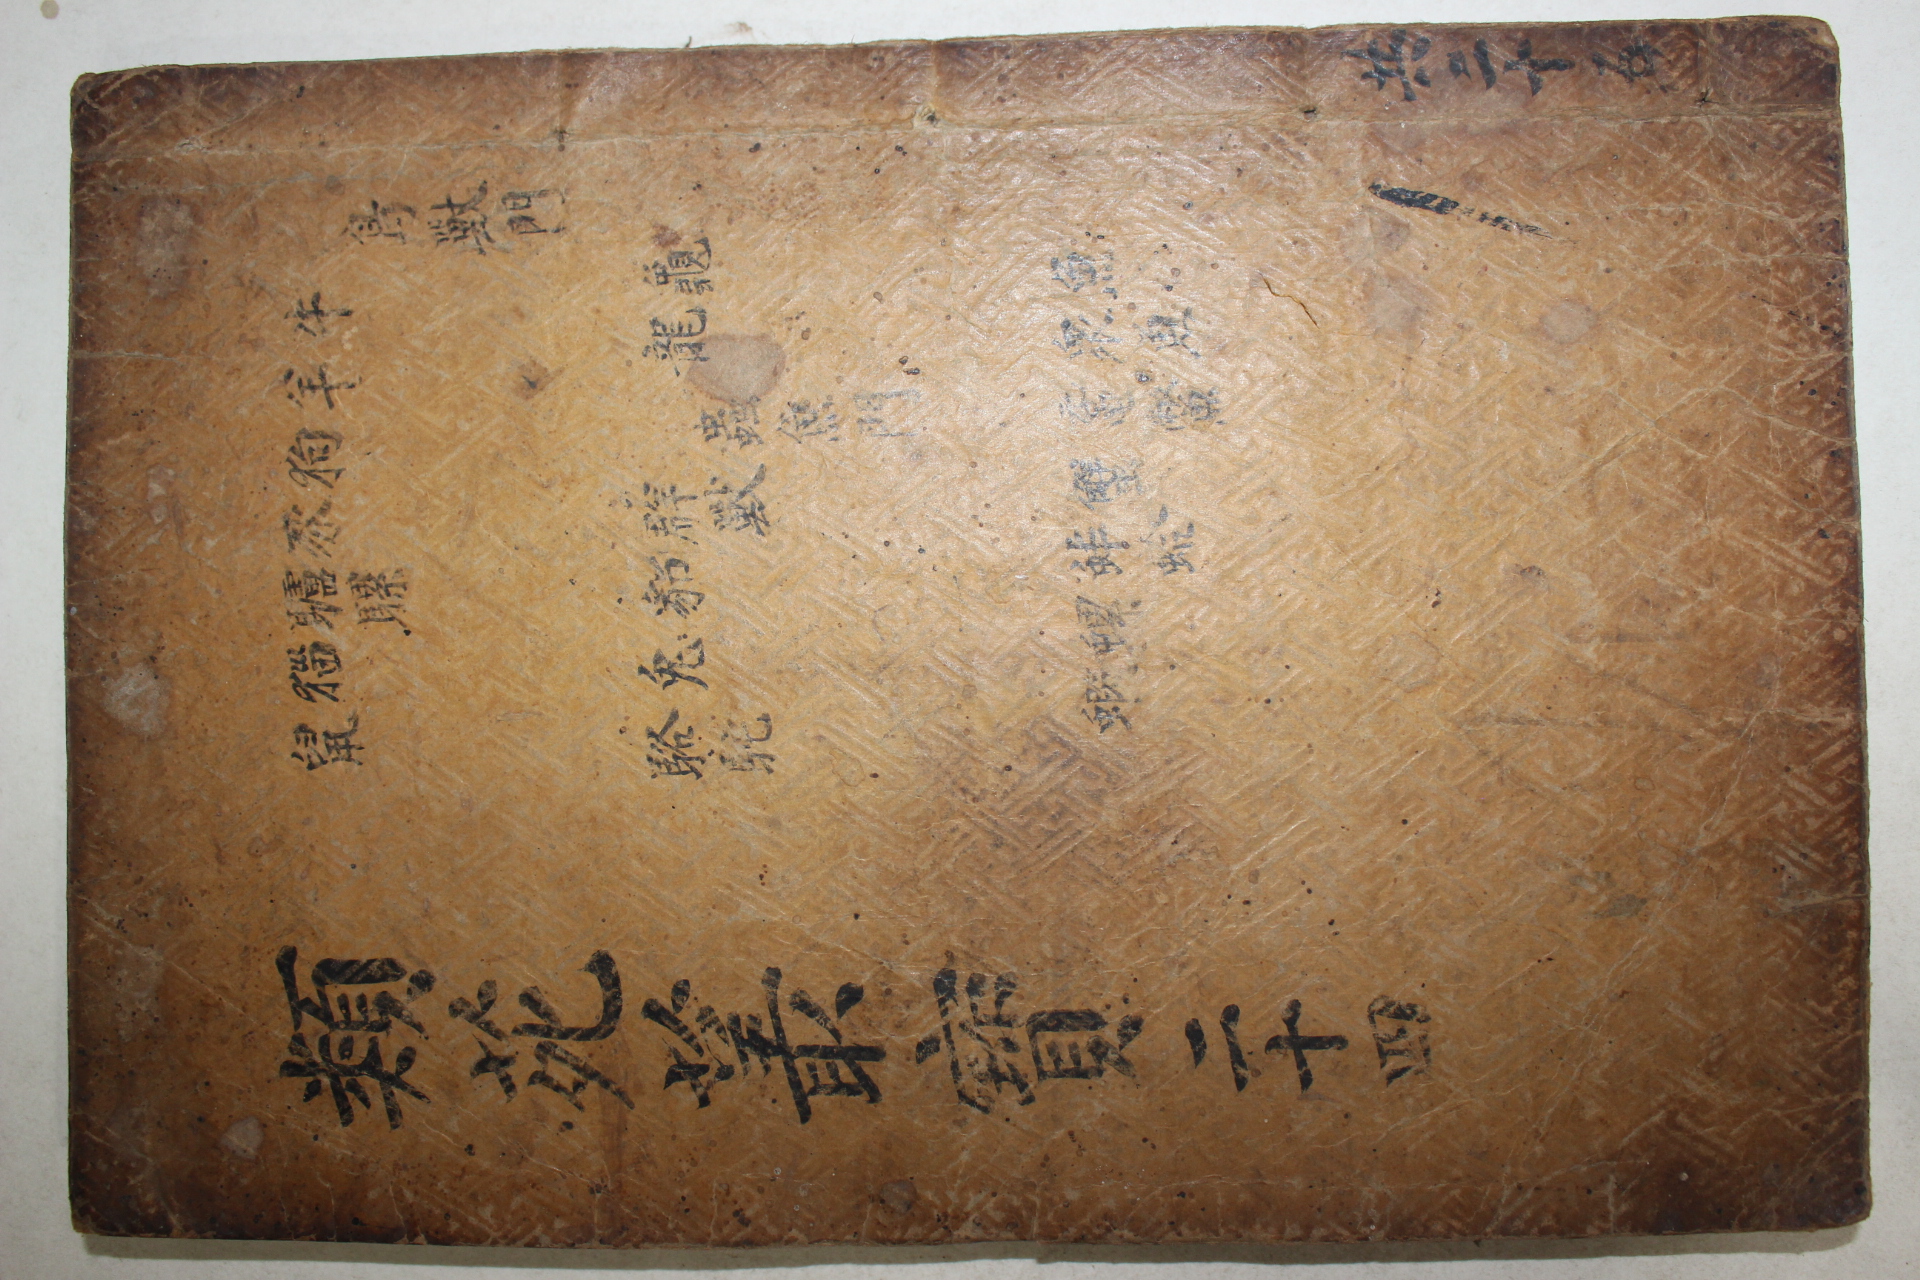 類苑叢寶 二十四
鳥獸門
牛
羊
狗
豕
驢騾
猫
鼠
群獸
貂
兔
駱駝
蟲魚門
龜
龍
魚
衆魚
黿鱉
蟹
蚌蛤
螺
蝦
共二十五